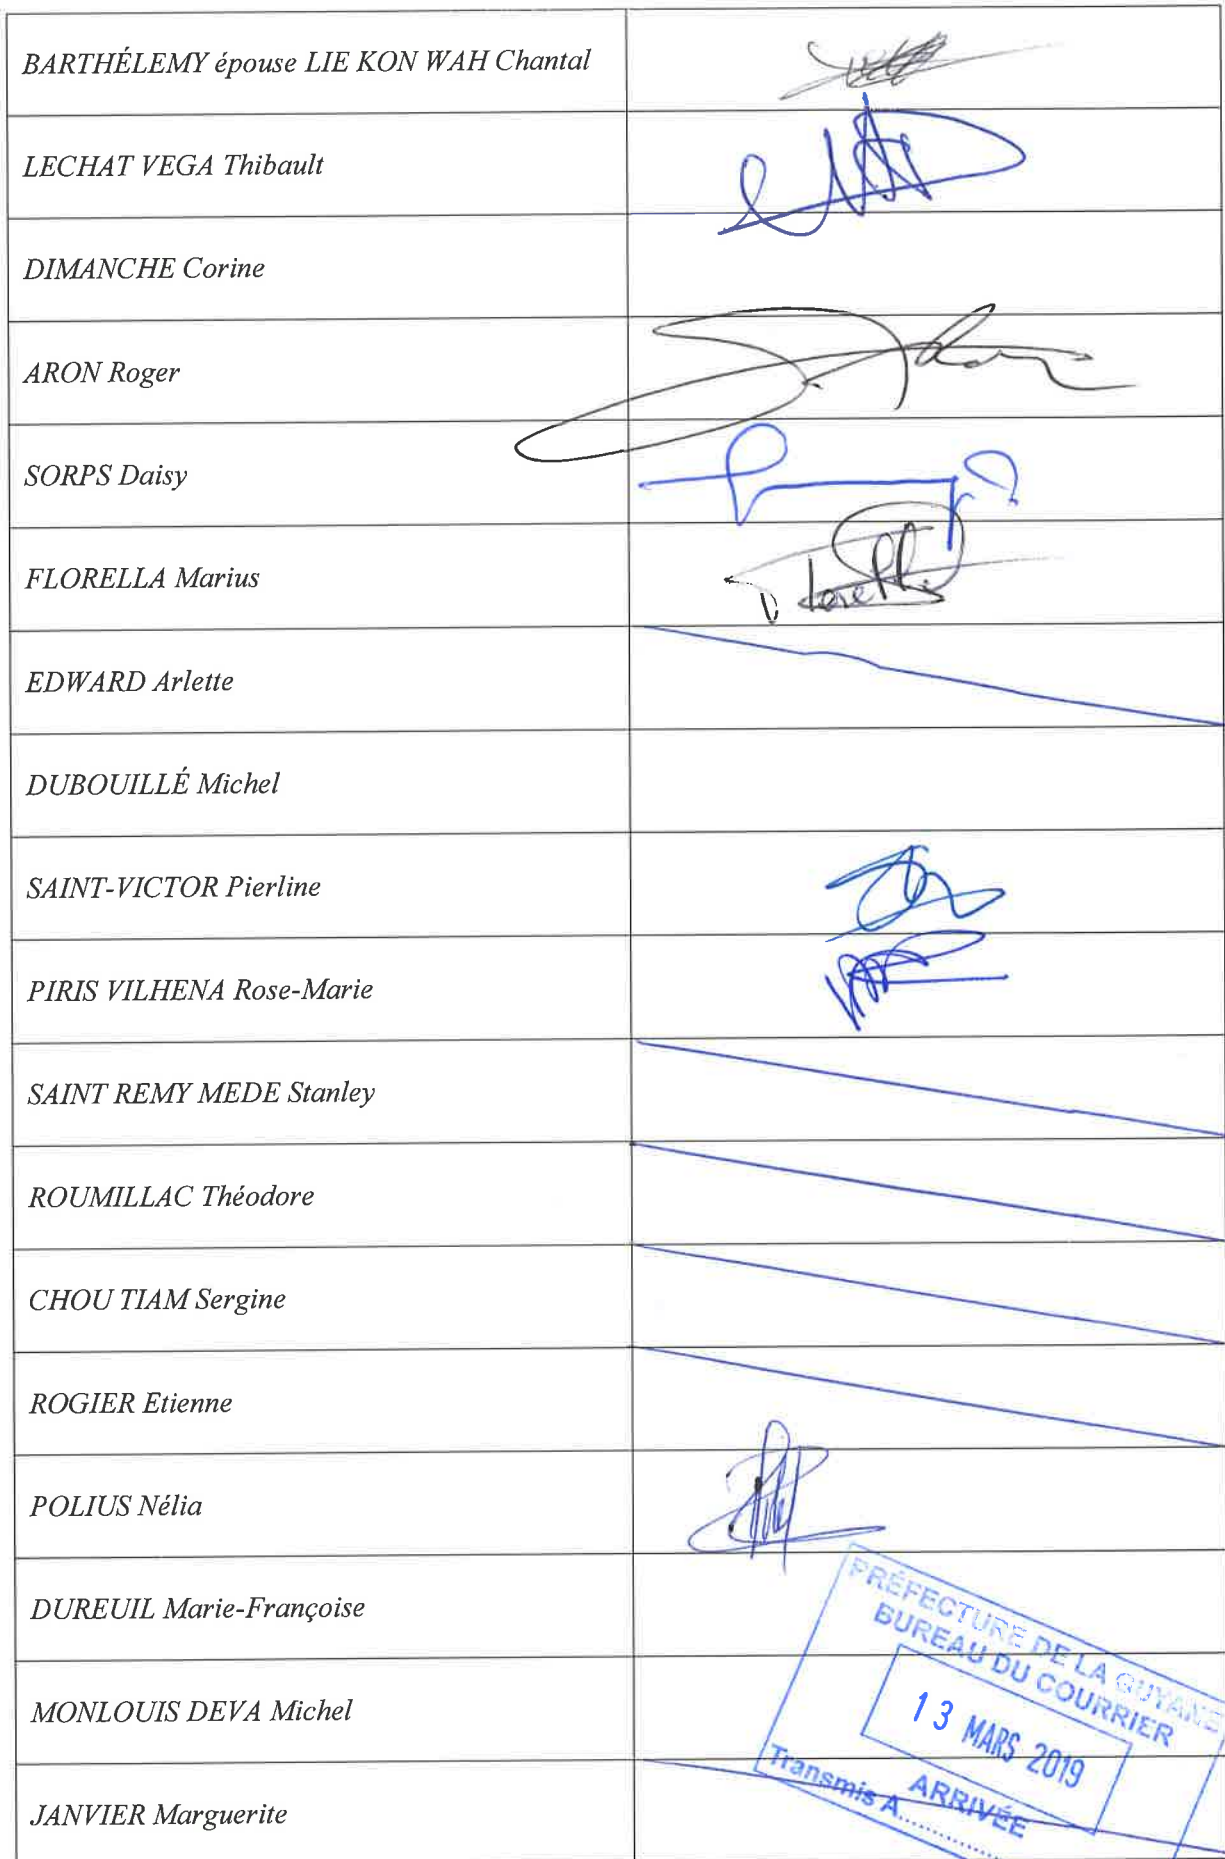 BARTHÉLEMY épouse LIE KON WAH Chantal
LECHAT VEGA Thibault
DIMANCHE Corine
ARON Roger
SORPS Daisy
FLORELLA Marius
EDWARD Arlette
DUBOUILLÉ Michel
SAINT-VICTOR Pierline
PIRIS VILHENA Rose-Marie
SAINT REMY MEDE Stanley
ROUMILLAC Théodore
CHOU TIAM Sergine
ROGIER Etienne
POLIUS Nélia
DUREUIL Marie-Françoise
MONLOUIS DEVA Michel
JANVIER Marguerite
PRÉFECTURE DE LA GUYANE
BUREAU DU COURRIER
13 MARS 2019
ARRIVÉE
Transmis A...............